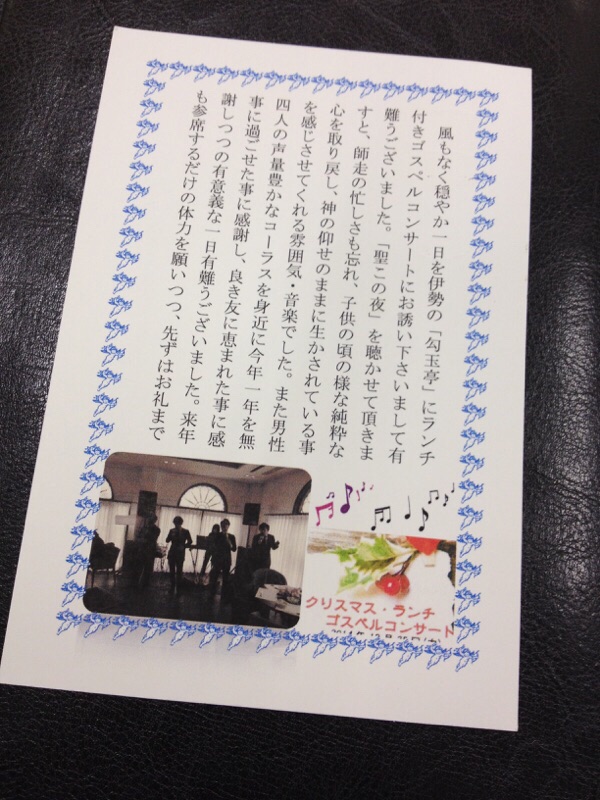 風もなく穏やか一日を伊勢の「勾玉亭」にランチ
付きゴスペルコンサートにお誘い下さいまして有
難うございました。「聖この夜」を聴かせて頂きま
すと、師走の忙しさも忘れ、子供の頃の様な純粋な
心を取り戻し、神の仰せのままに生かされている事
を感じさせてくれる雰囲気・音楽でした。また男性
四人の声量豊かなコーラスを身近に今年一年を無
事に過ごせた事に感謝し、良き友に恵まれた事に感
謝しつつの有意義な一日有難うございました。来年
も参席するだけの体力を願いつつ、先ずはお礼まで
クリスマス・ランチ
ゴスペルコンサート